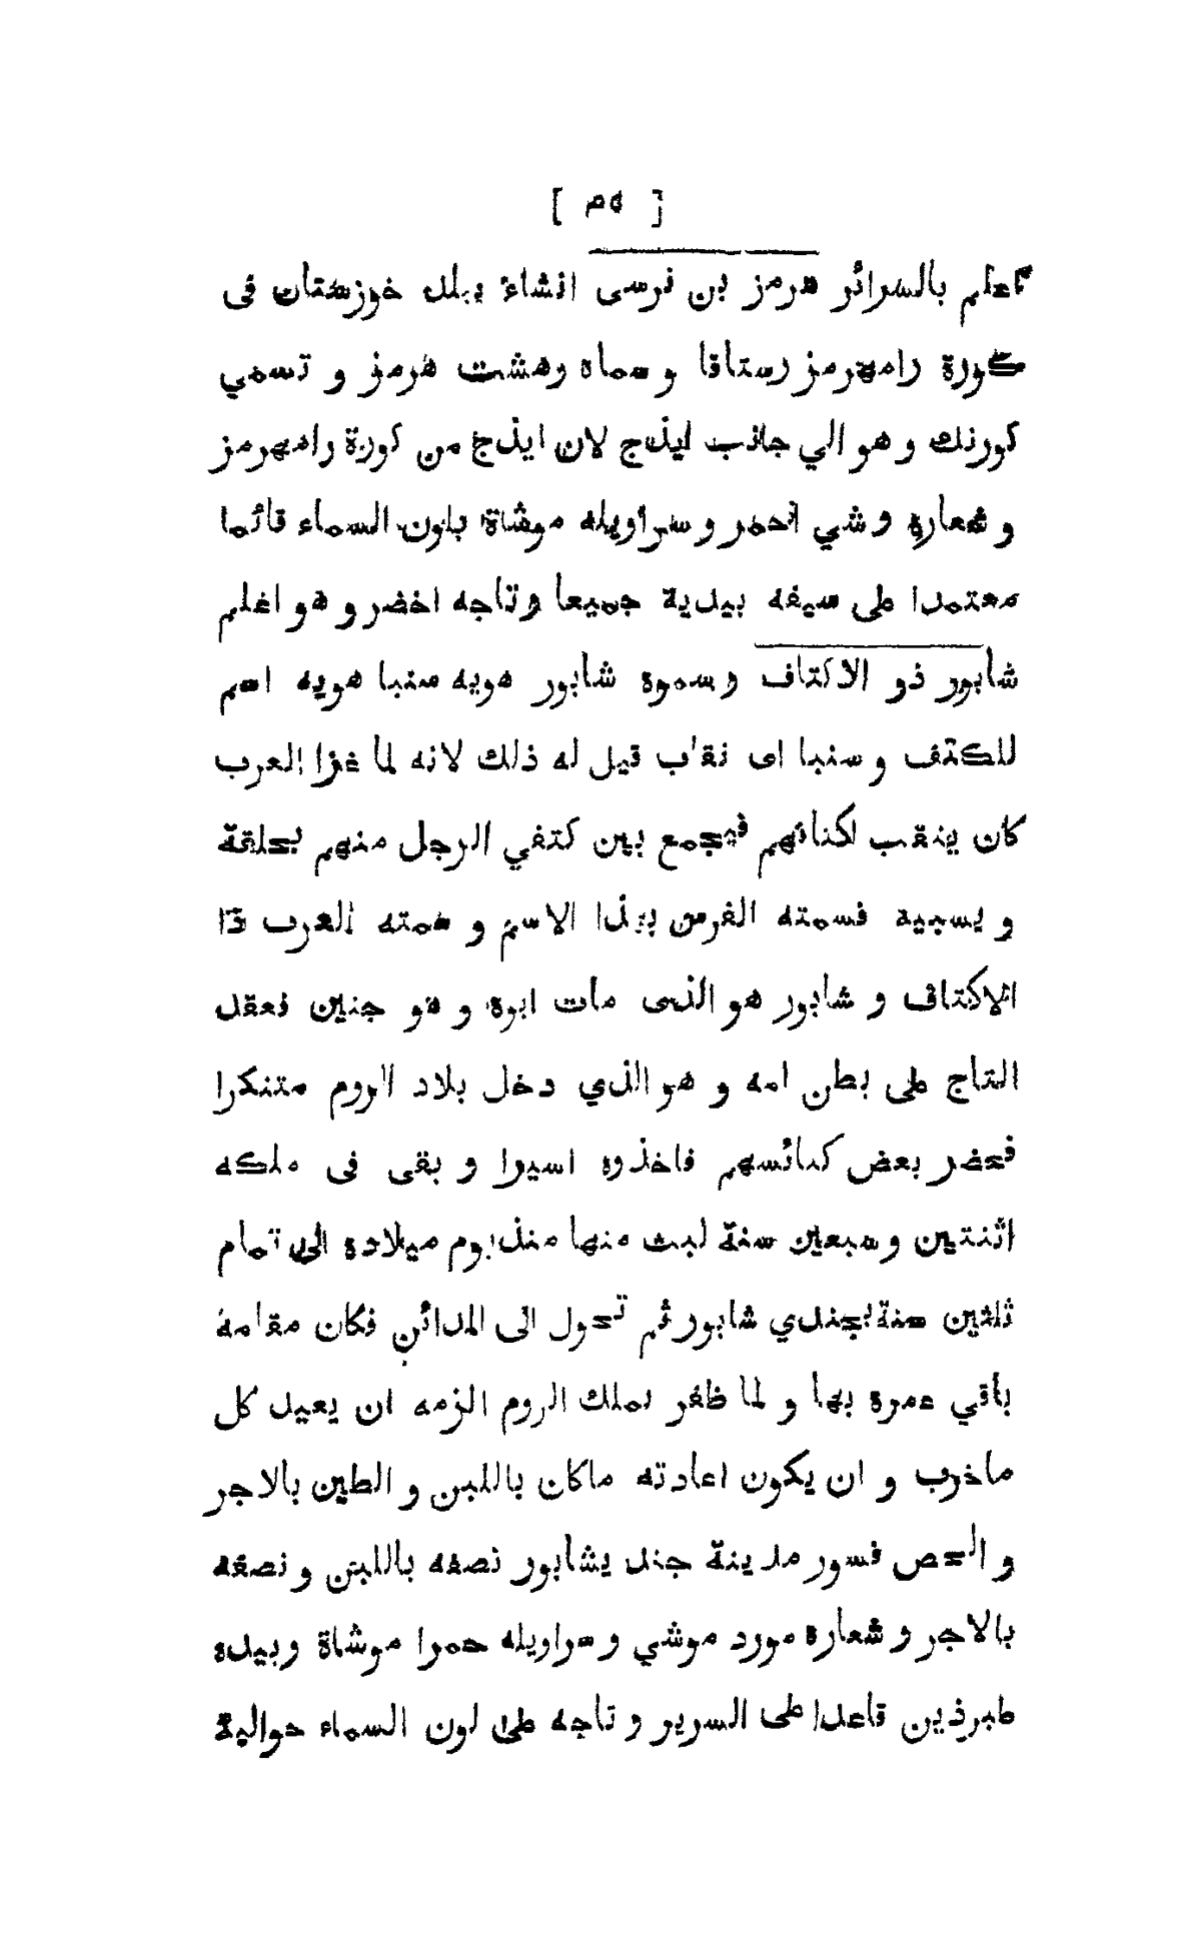 [ ٥٣ ]
اعلم بالسرائر هرمز بن نرسى انشاء ببلد خوزستان فى
كورة رامهرمز رستاقا و سماه وهشت هرمز و تسمي
كورنك و هو الي جانب ايذج لان ايذج من كورة رامهرمز
و شعاره وشي احمر و سراويله موشاة بلون السماء قائما
معتمدا على سيفه بيدية جميعا و تاجه اخضر و هو اعلم
شابور ذو الاكتاف و سموه شابور هويه سنبا هويه اسم
للكتف و سنبا اى نقاب قيل له ذلك لانه لما غزا العرب
كان ينقب اكتافهم فيجمع بين كتفي الرجل منهم بحلقة
و يسبيه فسمته الفرس بهذا الاسم و سمته العرب ذا
الاكتاف و شابور هو الذى مات ابوه و هو جنين فعقد
التاج على بطن امه و هو الذي دخل بلاد الروم متنكرا
فحضر بعض كنائسهم فاخذوه اسيرا و بقى فى ملكه
اثنتين و سبعين سنة لبث منها منذ يوم ميلاده الى تمام
ثلثين سنة بجندي شابور ثم تحول الى المدائن فكان مقامه
باقي عمره بها و لما ظفر بملك الروم الزمه ان يعيد كل
ماخرب و ان يكون اعادته ماكان باللبن و الطين بالاجر
و الجص فسور مدينة جند يشابور نصفه باللبن و نصفه
بالاجر و شعاره مورد موشي و سراويله حمرا موشاة و بيده
طبرزين قاعدا على السرير و تاجه على لون السماء حوالية